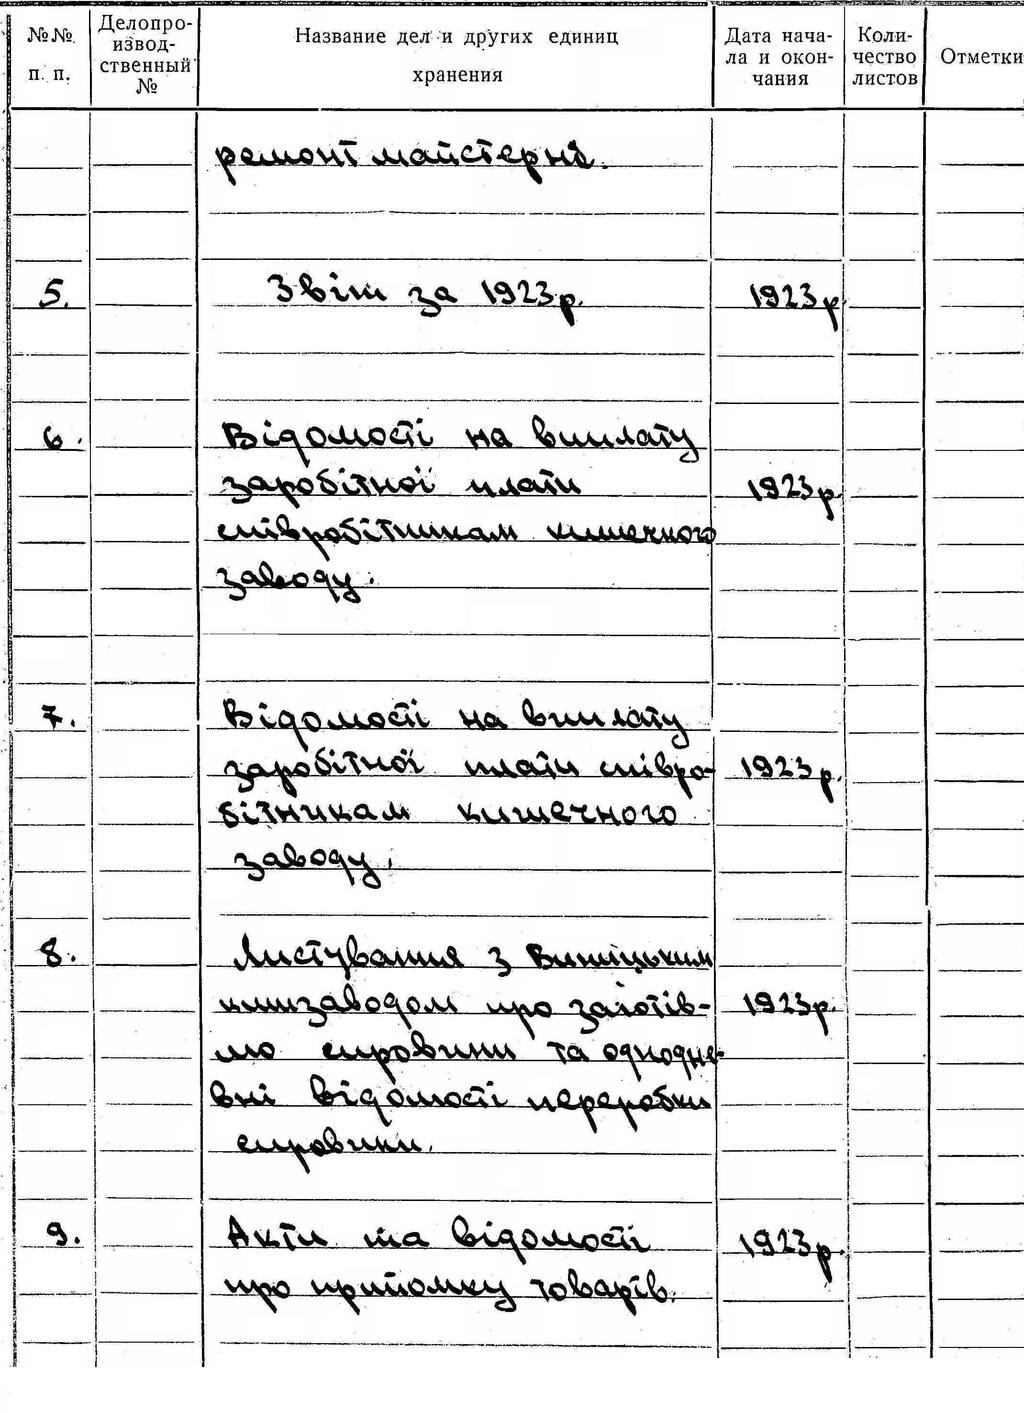 №№ п. п.
Делопро-
извод-
ственный
№
Название дел и других единиц
хранения
Дата нача-
ла и окон-
чания
Коли-
чество
листов
Отметки
ремонт майстерні.
5. Звіт за 1923 р. 1923 р
6. Відомості на виплату
заробітної плати 1923 р.
співробітникам кишечного
заводу.
7. Відомості на виплату
заробітної плати співро- 1923 р.
бітникам кишечного
заводу.
8. Листування з Виницьким
кишзаводом про заготів- 1923 р.
лю сировини та однодне-
вні відомості переробки
сировини.
9. Акти та відомості 1923 р.
про прийомку товарів.